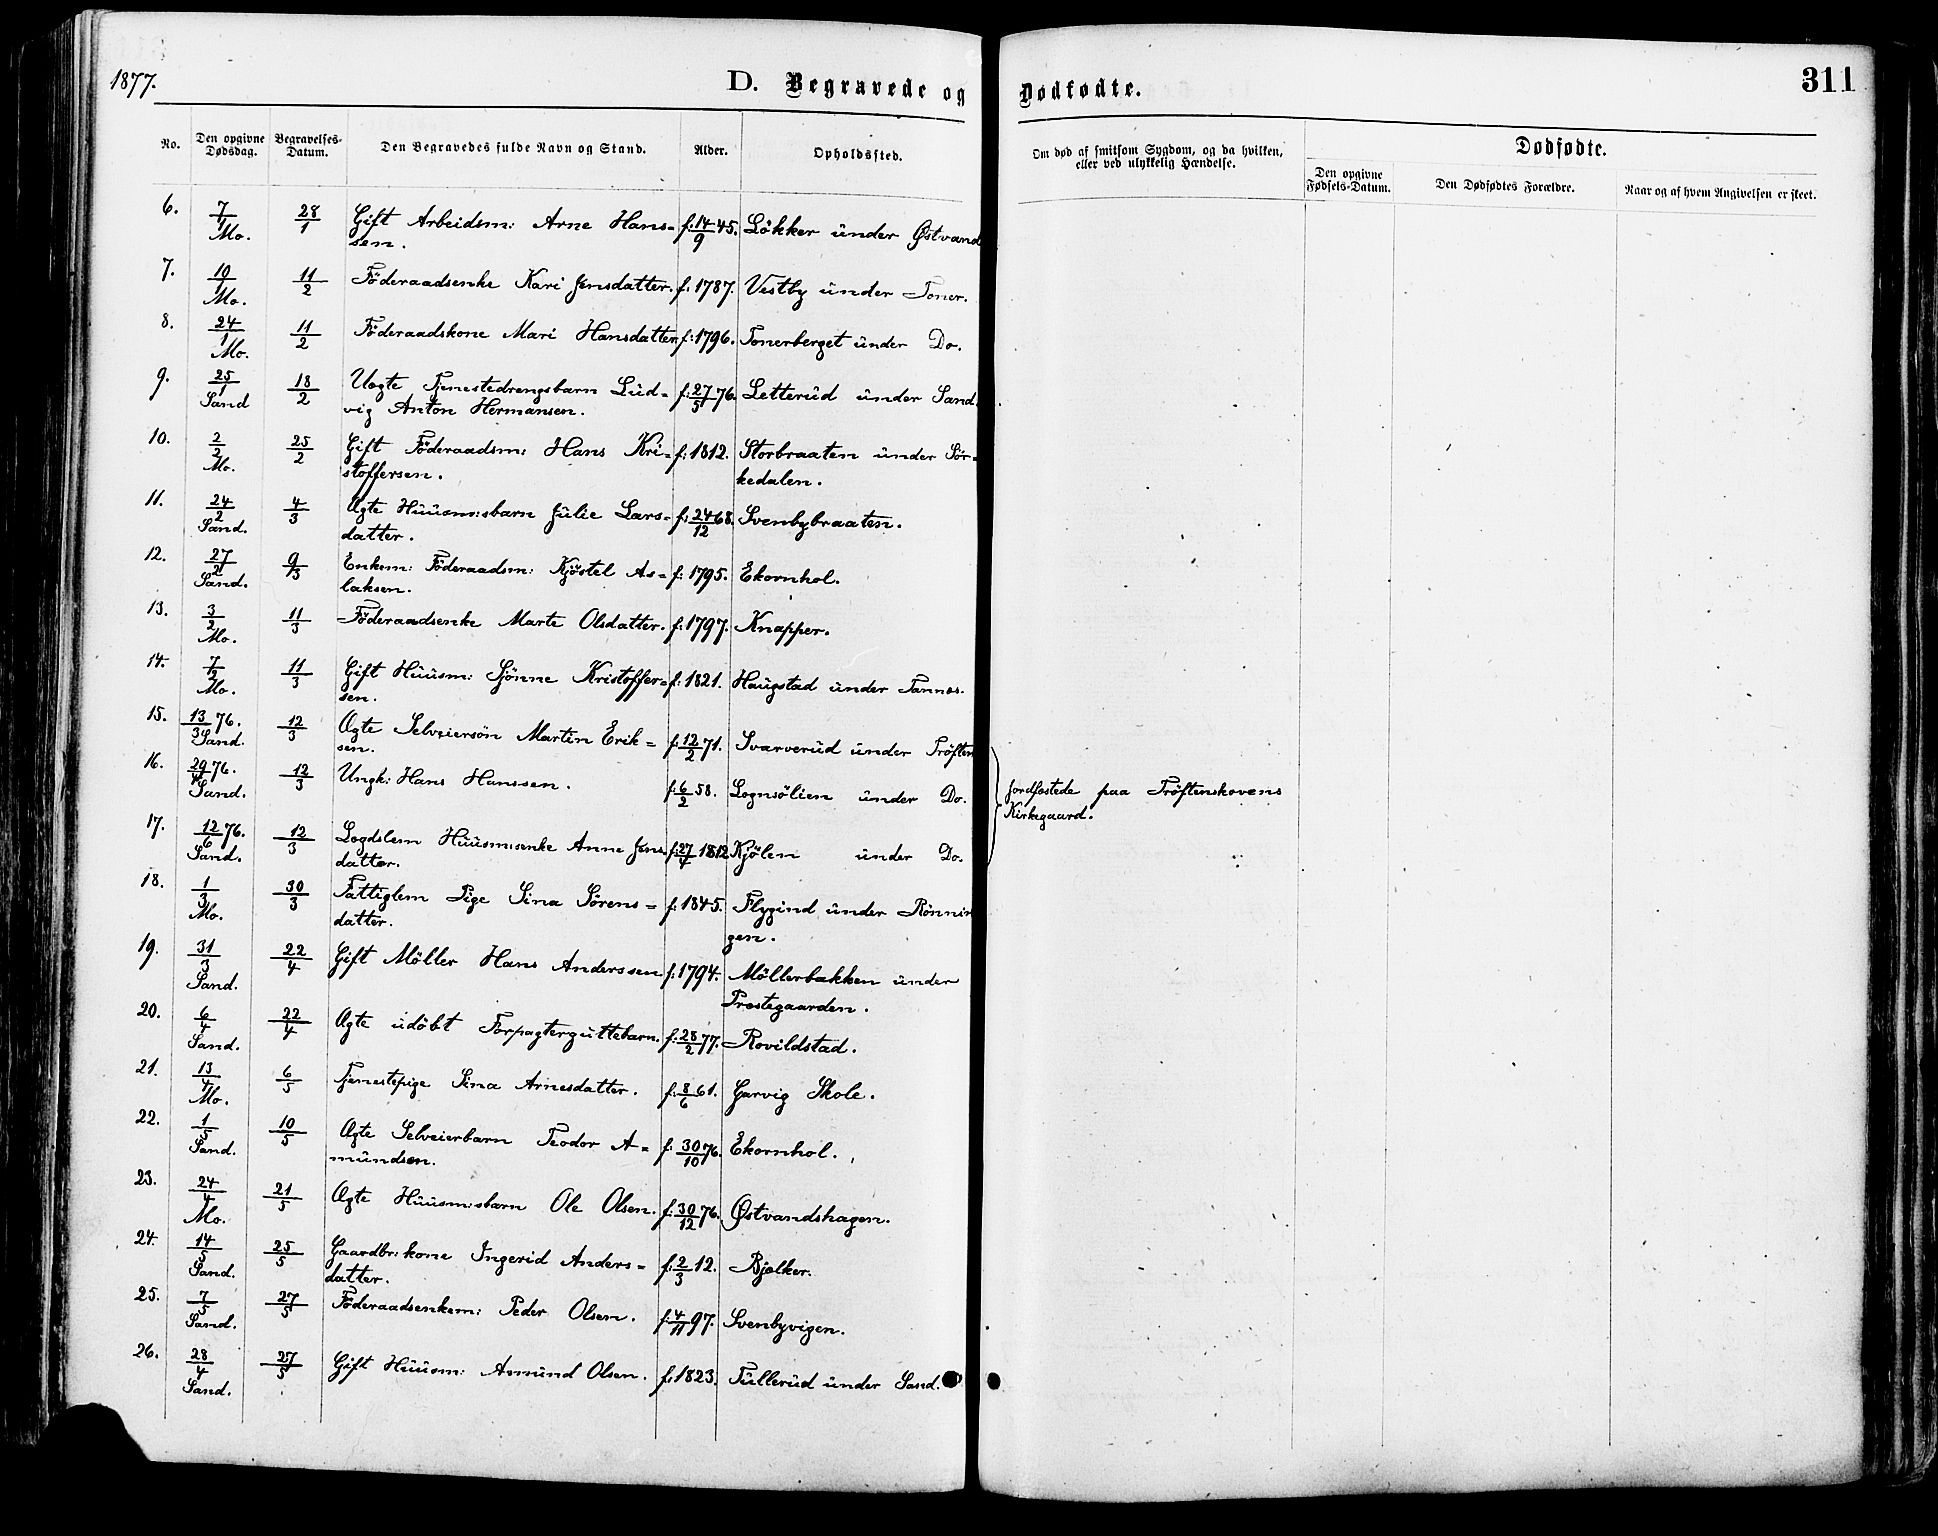 1877.
D. Begravede og Dødfødte.
311
No.
Den opgivne Dødsdag.
Begravelses-Datum.
Den Begravedes fulde Navn og Stand.
Alder.
Opholdssted.
Om død af smitsom Sygdom, og da hvilken,
eller ved ulykkelig Hændelse.
Dødfødte.
Den opgivne Fødsels-Datum.
Den Dødfødtes Forældre.
Naar og af hvem Angivelsen er skeet.
6. 7/1 28/1 Gift Arbeidsm: Arne Hans= f: 14/9 45. Løkker under Østvand
Mo. sen.
7. 10/1 11/2 Föderaadsenke Kari Jensdatter. f: 1787. Vestby under Toner.
Mo.
8. 24/1 11/2 Föderaadskone Mari Hansdatter f: 1796. Tonerberget under Do.
Mo.
9. 25/1 18/2 Uægte Tjenestedrengsbarn Lud= f: 27/5 76. Letterud under Sand.
Sand vig Anton Hermansen.
10. 2/2 25/2 Gift Föderaadsm: Hans Kri= f: 1812. Storbraaten under Sör=
Mo. stoffersen. kedalen.
11. 24/2 4/3 Ægte Huusm:sbarn Julie Lars= f: 24/12 68. Svenbybraaten.
Sand. datter.
12. 27/2 9/3 Enkem: Föderaadsm: Kjöstel As= f: 1795. Ekornhol.
Sand. laksen.
13. 3/2 11/3 Föderaadsenke Marte Olsdatter. f: 1797. Knapper.
Mo.
14. 7/2 11/3 Gift Huusm: Sjönne Kristoffer= f: 1821. Haugstad under Tannæs.
Mo. sen.
15. 13/3 76. 12/3 Ægte Selveiersön Martin Erik= f: 12/2 71. Svarverud under Tröften
Sand. sen.
16. 29/4 76. 12/3 Ungk: Hans Hanssen. f: 6/2 58. Lognsölien under Do.
Sand.
jordfæstede paa Tröftenskovens
Kirkegaard.
17. 12/6 76. 12/3 Lægdslem Huusm:senke Anne Jens f: 27/4 1812 Kjölen under Do.
Sand. datter.
18. 1/3 30/3 Fattiglem Pige Sina Sörens= f: 1845. Flygind under Rönnin
Mo. datter. gen.
19. 31/3 22/4 Gift Möller Hans Anderssen f: 1794. Möllerbakken under
Sand. Præstegaarden.
20. 6/4 22/4 Ægte udöbt Forpagterguttebarn. f: 28/2 77. Rovildstad.
Sand.
21. 13/4 6/5 Tjenestepige Sina Arnesdatter. f: 8/6 61. Garvig Skole.
Mo.
22. 1/5 10/5 Ægte Selveierbarn Teodor A= f: 30/10 76. Ekornhol.
Sand. mundsen.
23. 24/4 21/5 Ægte Huusm:sbarn Ole Olsen. f: 30/12 76. Østvandshagen.
Mo.
24. 14/5 25/5 Gaardbr: kone Ingerid Anders= f: 2/3 12. Bjælker.
Sand. datter.
25. 7/5 27/5 Föderaadsenkem: Peder Olsen. f: 4/11 97. Svenbyvigen.
Sand.
26. 28/4 27/5 Gift Huusm: Amund Olsen. f: 1823. Tullerud under Sand.
Sand.